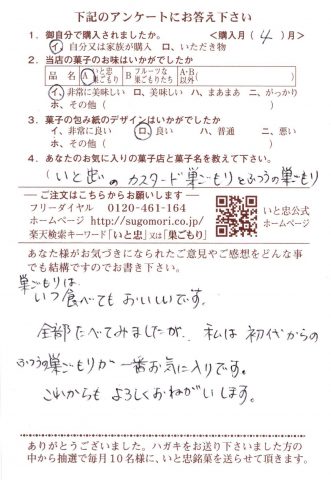 下記のアンケートにお答え下さい
1. 御自分で購入されましたか。 <購入月( 4 )月>
イ、自分又は家族が購入 ロ、いただき物
2. 当店の菓子のお味はいかがでしたか
品名 A いと忠巣ごもり B フルーツな巣ごもりたち A・B以外( )
イ、非常に美味しい ロ、美味しい ハ、まあまあ ニ、がっかり
ホ、その他( )
3. 菓子の包み紙のデザインはいかがでしたか
イ、非常に良い ロ、良い ハ、普通 ニ、悪い
ホ、その他( )
4. あなたのお気に入りの菓子店と菓子名を教えて下さい。
(いと忠のカスタード巣ごもりとふつうの巣ごもり
ご注文はこちらからお願いします
フリーダイヤル 0120-461-164
ホームページ http://sugomori.co.jp/
楽天検索キーワード「いと忠」又は「巣ごもり」
いと忠公式ホームページ
あなた様がお気づきになられたご意見やご感想をどんな事
でも結構ですのでお書き下さい。
巣ごもりは
いつ食べても おいしいです。
全部たべてみましたが、私は初代からの
ふつうの巣ごもりが一番お気に入りです。
これからも よろしくおねがいします。
ありがとうございました。ハガキをお送り下さいました方の
中から抽選で毎月10名様に、いと忠銘菓を送らせて頂きます。